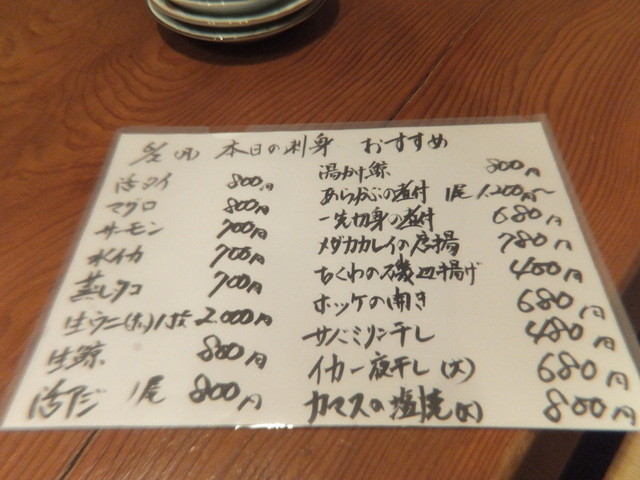 6/2(月) 本日の刺身 おすすめ
活タイ 800円
マグロ 800円
サーモン 700円
水イカ 700円
蒸しタコ 700円
生ウニ(赤)1枚 2,000円
生鯨 800円
活アジ 1尾 800円
湯かけ鯨 800円
あらかぶの煮付 1尾 1,200円〜
切身の煮付 680円
メダカカレイの唐揚 780円
ちくわの磯辺揚げ 400円
ホッケの開き 680円
サバミリン干し 480円
イカ一夜干し(大) 680円
カマスの塩焼(大) 800円